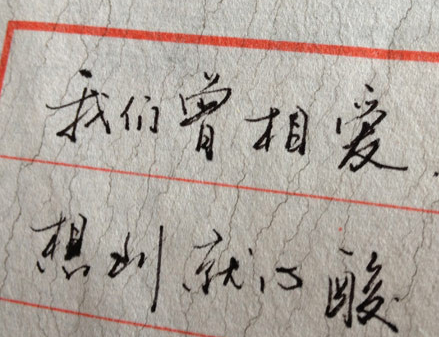 我们曾相爱.
想到就心酸